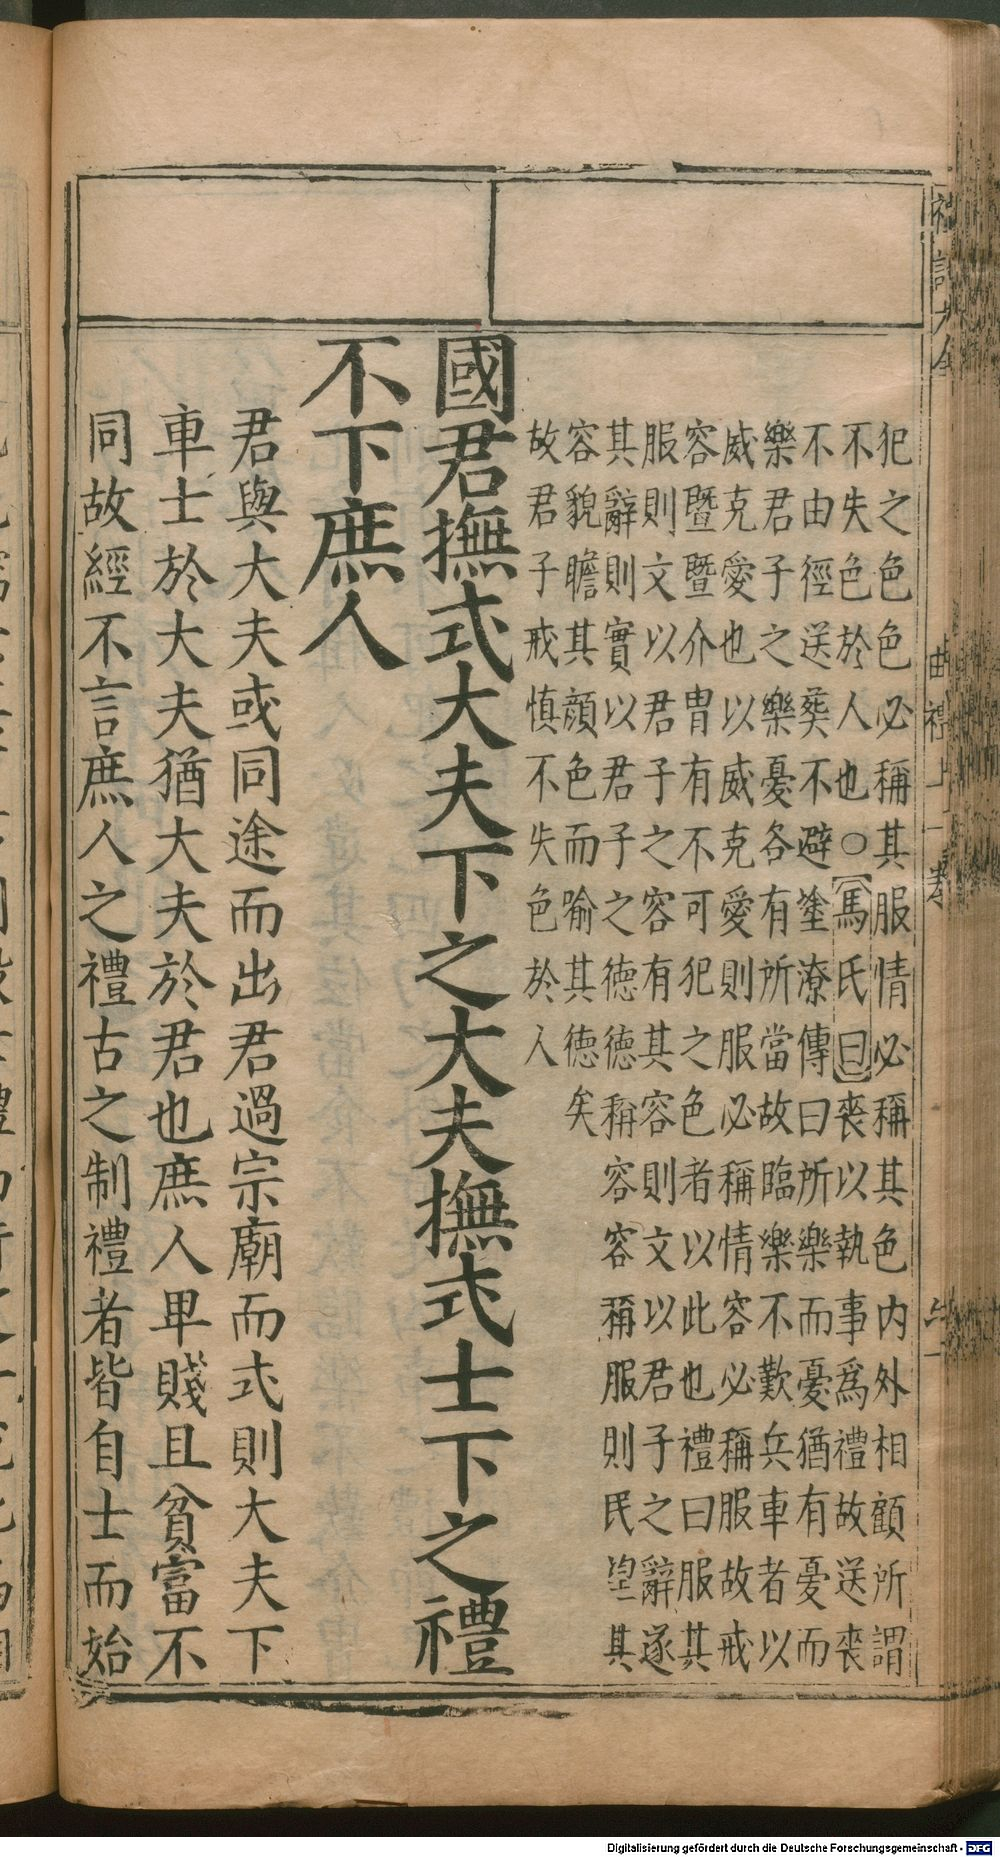 禮記大全
曲禮上一卷
犯之色色必稱其服情必稱其色内外相顧所謂
不失色於人也○馬氏曰喪以執事爲禮故送喪
不由徑送葬不避塗潦傳曰所樂而憂猶有憂而
樂君子之樂憂各有所當故臨樂不歎兵車者以
威克愛也以威克愛則服必稱情容必稱服故戒
容暨暨介冑有不可犯之色者以此也禮曰服其
服則文以君子之容有其容則文以君子之辭遂
其辭則實以君子之德德稱容容稱服則民望其
容貌瞻其顔色而喻其德矣
故君子戒慎不失色於人
國君撫式大夫下之大夫撫式士下之禮
不下庶人
君與大夫或同途而出君過宗廟而式則大夫下
車士於大夫猶大夫於君也庶人卑賤且貧富不
同故經不言庶人之禮古之制禮者皆自士而始
Digitalisierung gefördert durch die Deutsche Forschungsgemeinschaft - DFG